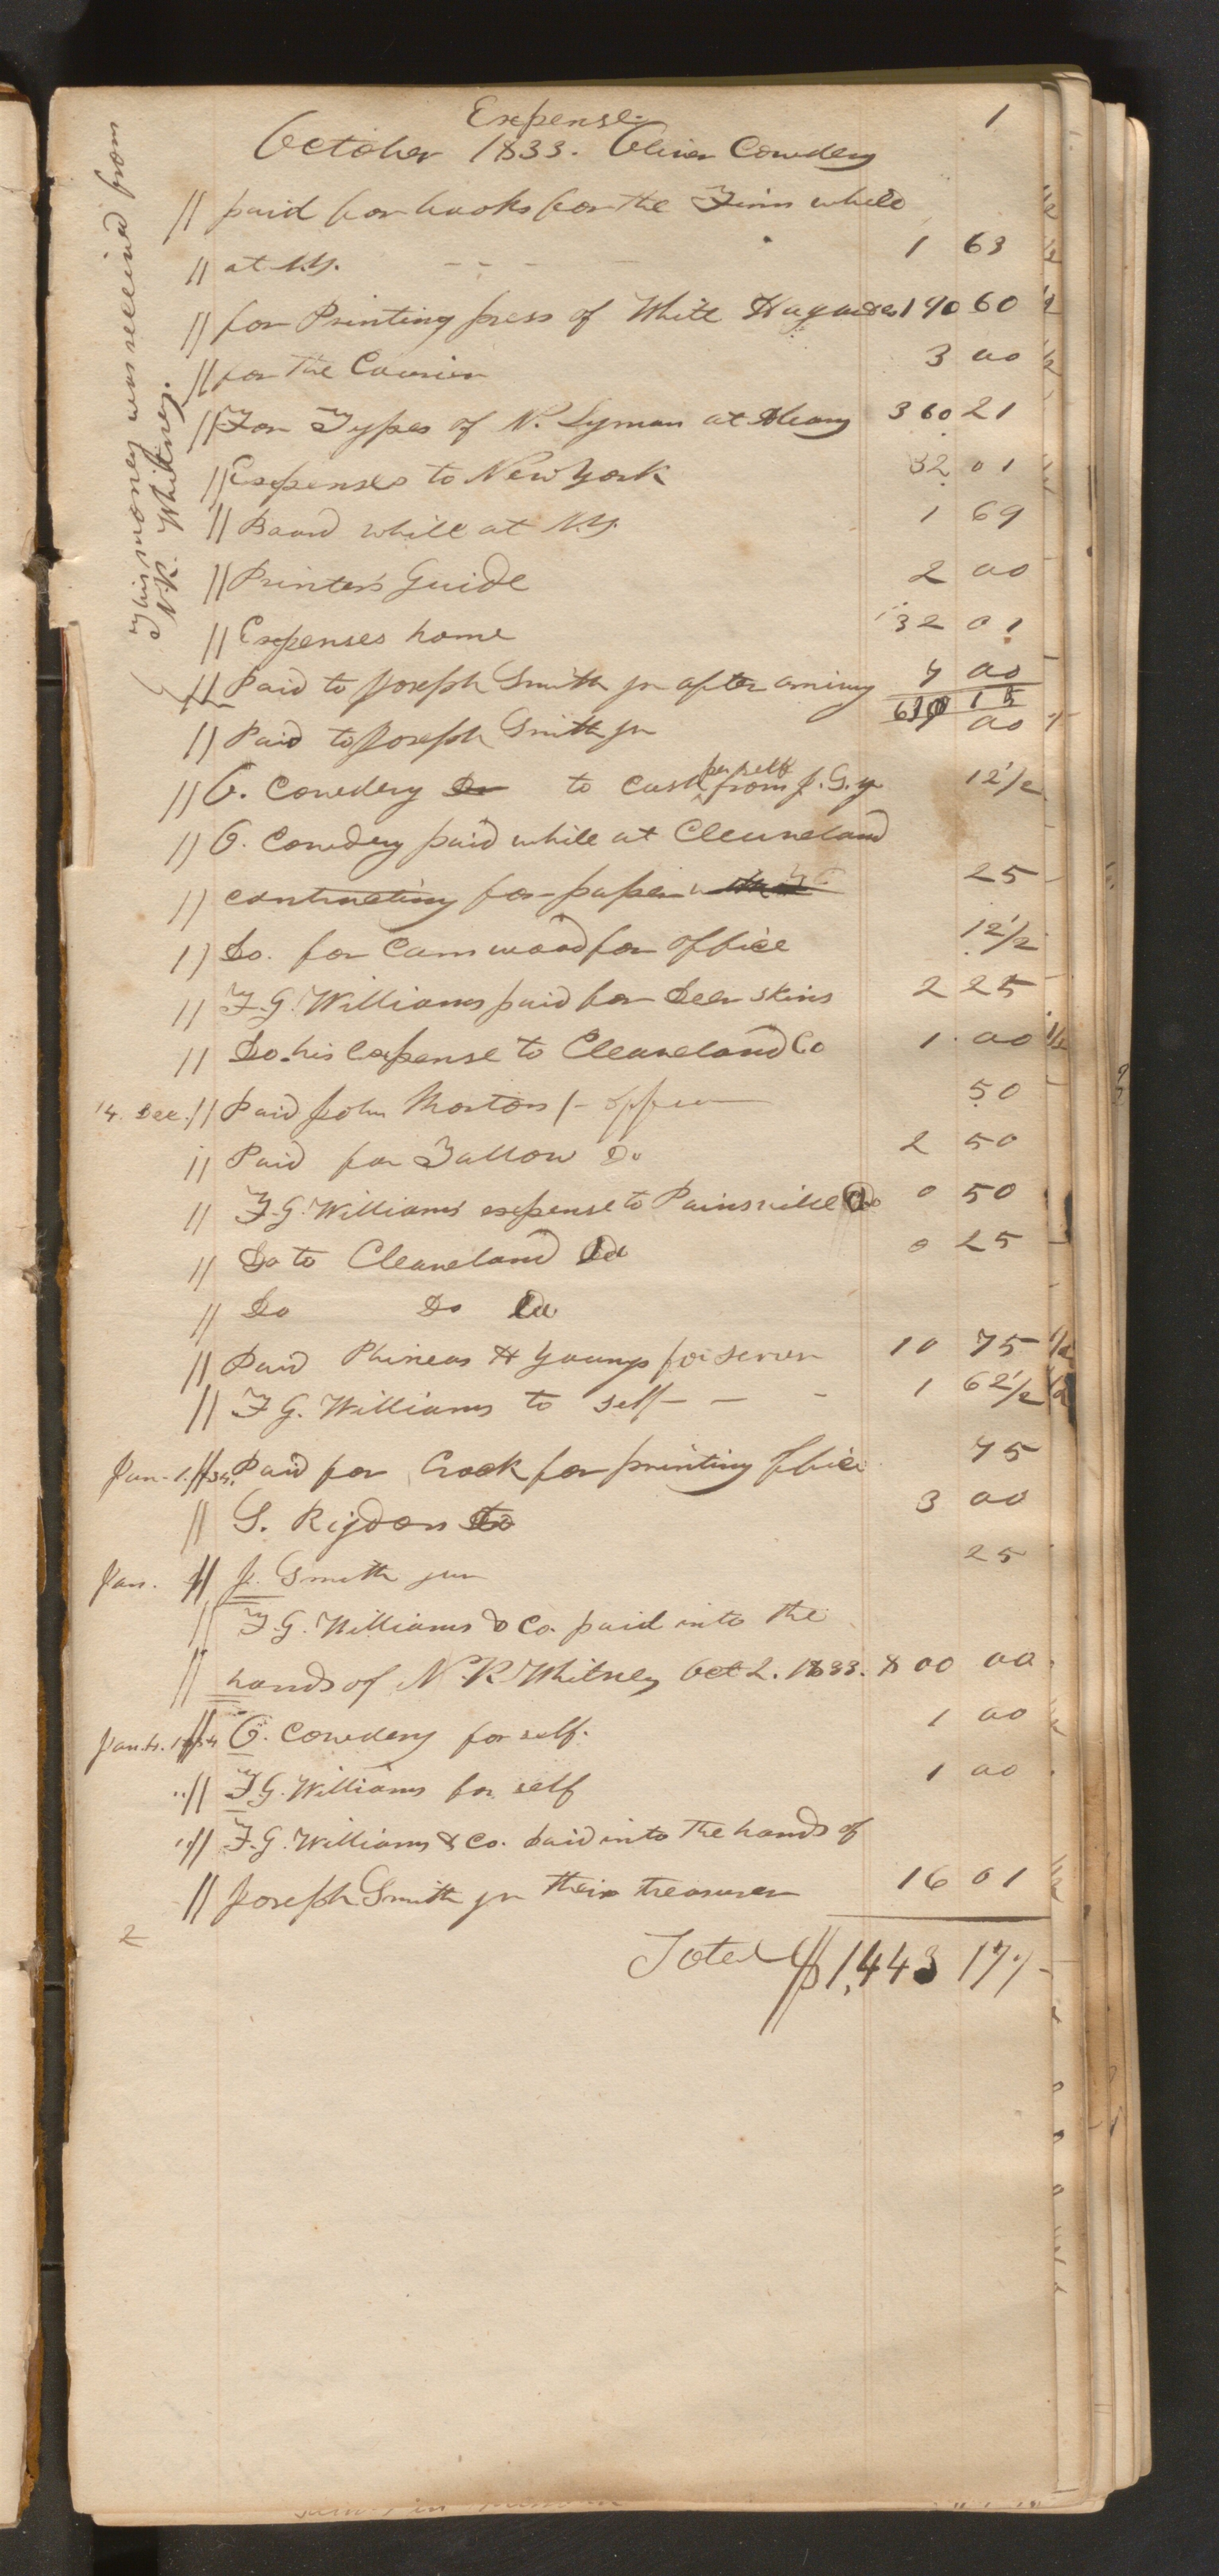 1
Expense.
October 1833. Oliver Cowdery
This money was received from
N. K. Whitney.
// paid for books for the Firm while
// at N.Y. - - - - 1 63
// for Printing press of White Hagar &co 190 60
// for The Courier 3 00
// For Types of N. Lyman at Albany 360 21
// Expenses to New York 32 01
// Board while at N.Y. 1 69
// Printer's Guide 2 00
// Expenses home 32 01
// Paid to Joseph Smith jr after ariving 7 00
630 15
// Paid to Joseph Smith jr 7 00
// O. Cowdery Dr to Cash per self from J. S. jr 12 1/2
// O. Cowdery paid while at Cleaveland
// contracting for paper 25
// Do. for Cam wood for office 12 1/2
// F. G. Williams paid for Deer skins 2 25
// Do. his Expense to Cleaveland Co 1 00
14. Dec. // Paid John Morton 50
// Paid for Tallow Do 2 50
// F. G. Williams expense to Painsville Co 0 50
// Do to Cleaveland 0 25
// Do Do
// Paid Phineas H Young for 10 75
// F G. Williams to self - - - 1 62 1/2
Jan. 1. 1834. // Paid for Crock for printing office 75
// S. Rigdon Do 3 00
Jan. // J. Smith jun 25
// F. G. Williams & Co. paid into the
// hands of N. K. Whitney Oct 2. 1833. 800 00
Jan. 4. 1834 // O. Cowdery for self. 1 00
" // F. G. Williams for self 1 00
" // F. G. Williams & Co. paid into the hands of
// Joseph Smith jr their treasurer 16 01
Total $1,443 17